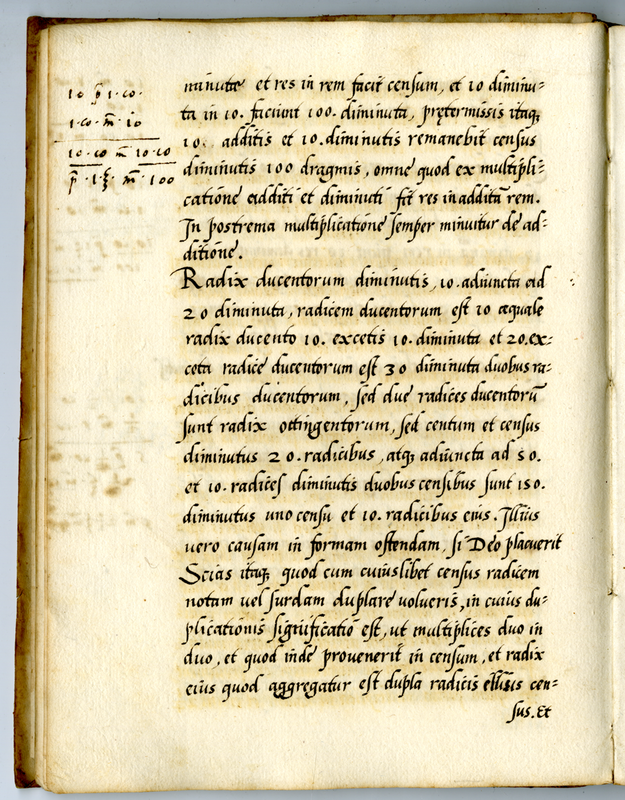 10 p̃ 1. co.
1. co. m̃. 10
10. co m̃ 10. co
p̃. 1. m̃. 100
minute et res in rem facit censum, et 10 diminu-
ta in 10. faciunt 100. diminuta, prętermissis itaq;
10. additis et 10. diminutis remanebit census
diminutis 100 dragmis, omne quod ex multipli-
catione additi et diminuti fit res in additā rem.
In postrema multiplicatione semper minuitur de ad-
ditione.
Radix ducentorum diminutis, 10. adiuncta ad
20 diminuta, radicem ducentorum est 10 æquale
radix ducento 10. excetis 10. diminuta et 20. ex-
ceta radice ducentorum est 30 diminuta duobus ra-
dicibus ducentorum, sed due radices ducentorū
sunt radix ottingentorum, sed centum et census
diminutus 20. radicibus, atq; adiuncta ad 50.
et 10. radices diminutis duobus censibus sunt 150.
diminutus uno censu et 10. radicibus eius. Illius
uero causam in formam ostendam, si Deo placuerit
Scias itaq; quod cum cuiuslibet census radicem
notam uel surdam duplare volueris, in cuius du-
plicationis significatio est, ut multiplices duo in
duo, et quod inde provenerit in censum, et radix
eius quod aggregatur est dupla radicis cen-
sus. Et